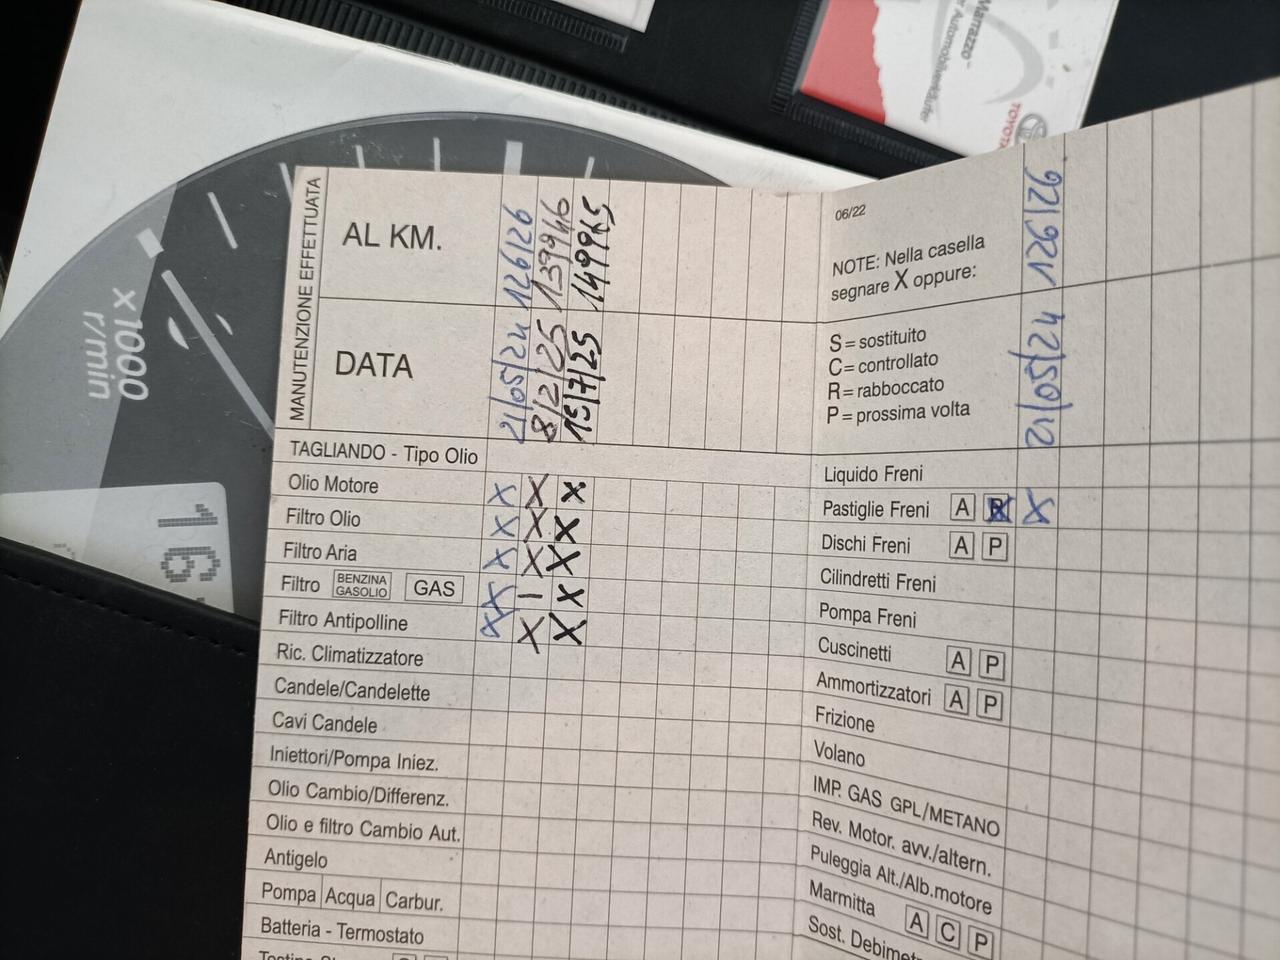 Marrazzo
er Automobilverkäufer
TOYOTA
x1000
r/min
MANUTENZIONE EFFETTUATA
AL KM. 126126 139946 149965
DATA 21/05/24 8/2/25 15/7/25
TAGLIANDO - Tipo Olio
Olio Motore X X X
Filtro Olio X X X
Filtro Aria X X X
Filtro BENZINA GASOLIO GAS X - X
Filtro Antipolline X X X
Ric. Climatizzatore
Candele/Candelette
Cavi Candele
Iniettori/Pompa Iniez.
Olio Cambio/Differenz.
Olio e filtro Cambio Aut.
Antigelo
Pompa Acqua Carbur.
Batteria - Termostato
06/22
NOTE: Nella casella
segnare X oppure:
S = sostituito
C = controllato
R = rabboccato
P = prossima volta
126126
21/05/24
Liquido Freni
Pastiglie Freni A P X
Dischi Freni A P
Cilindretti Freni
Pompa Freni
Cuscinetti A P
Ammortizzatori A P
Frizione
Volano
IMP. GAS GPL/METANO
Rev. Motor. avv./altern.
Puleggia Alt./Alb.motore
Marmitta A C P
Sost. Debimetr